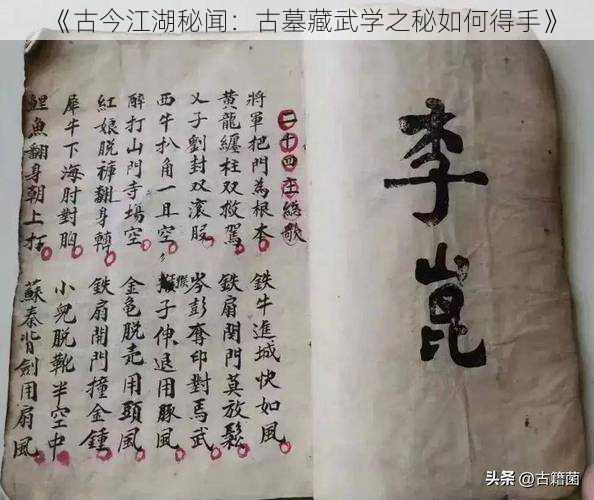 《古今江湖秘闻：古墓藏武学之秘如何得手》
李崑
二十四總歌
將軍把門為根本 鉄牛進城快如風
黃龍纏柱双救駕 鉄扇関門莫放鬆
乂子劉封双滾股 岑彭奪印對馬武
西牛扒角一且空 猴子伸退用豚風
醉打山門寺場空 金龜脱用頭風
紅娘脱褲翻身轉 鉄扇門撞金鍾
犀牛下海肘對胸 小兒脱靴半空中
鯉魚翻身朝上打 蘇秦背劍用扇風
头条 @古籍菌